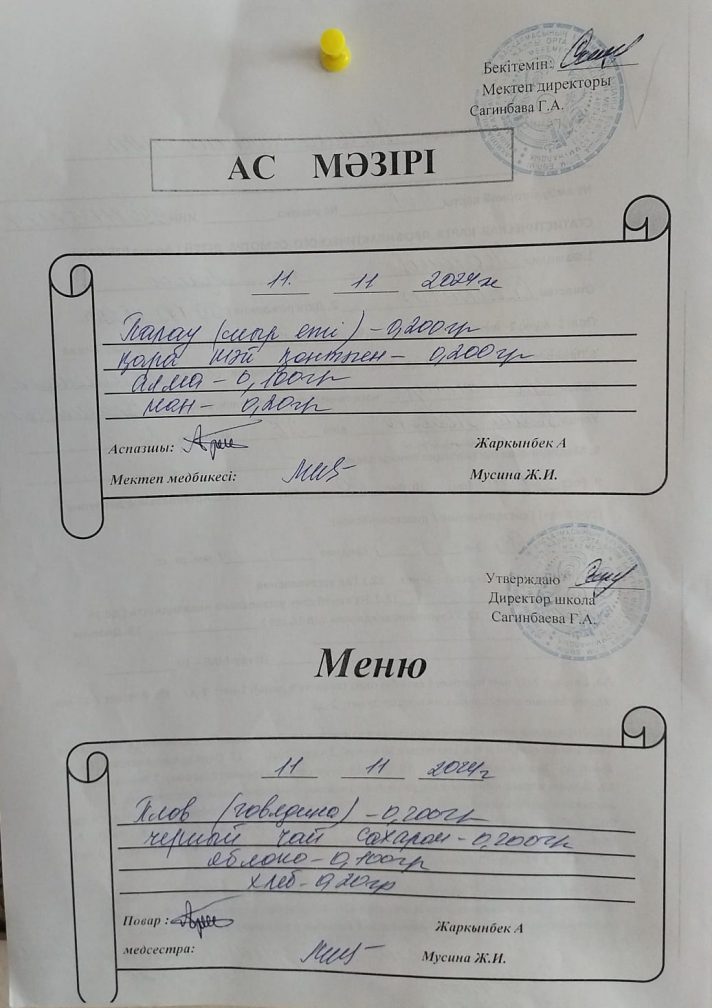 Бекітемін:
Мектеп директоры
Сагинбава Г.А.
АС МӘЗІРІ
11. 11 2024ж
Палау (сиыр еті) - 0,200гр
қара шәй қантпен - 0,200гр
алма - 0,100гр
нан - 0,20гр
Аспазшы: Жаркынбек А
Мектеп медбикесі: Мусина Ж.И.
Утверждаю
Директор школа
Сагинбаева Г.А.
Меню
11 11 2024г
Плов (говядина) - 0,200гр
черный чай сахаром - 0,200гр
яблоко - 0,100гр
хлеб - 0,20гр
Повар : Жаркынбек А
медсестра: Мусина Ж.И.